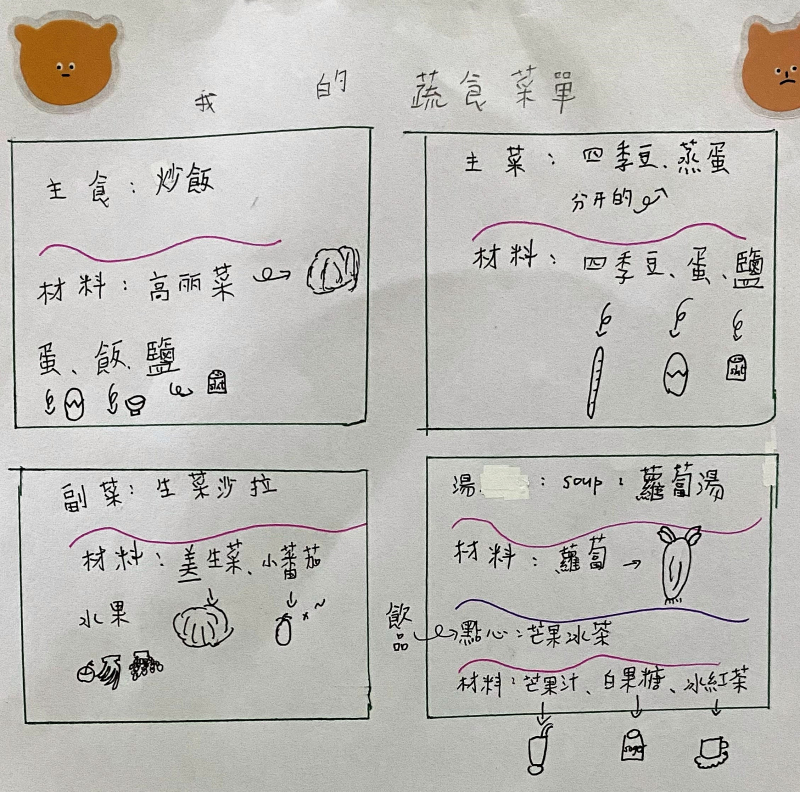 我 的 蔬食菜單
主食：炒飯
材料：高丽菜
蛋、飯、鹽
salt
主菜：四季豆、蒸蛋
分开的
材料：四季豆、蛋、鹽
salt
副菜：生菜沙拉
材料：美生菜、小蕃茄
水果
湯：soup：蘿蔔湯
材料：蘿蔔
飲品
點心：芒果冰茶
材料：芒果汁、白果糖、冰紅茶
sugar